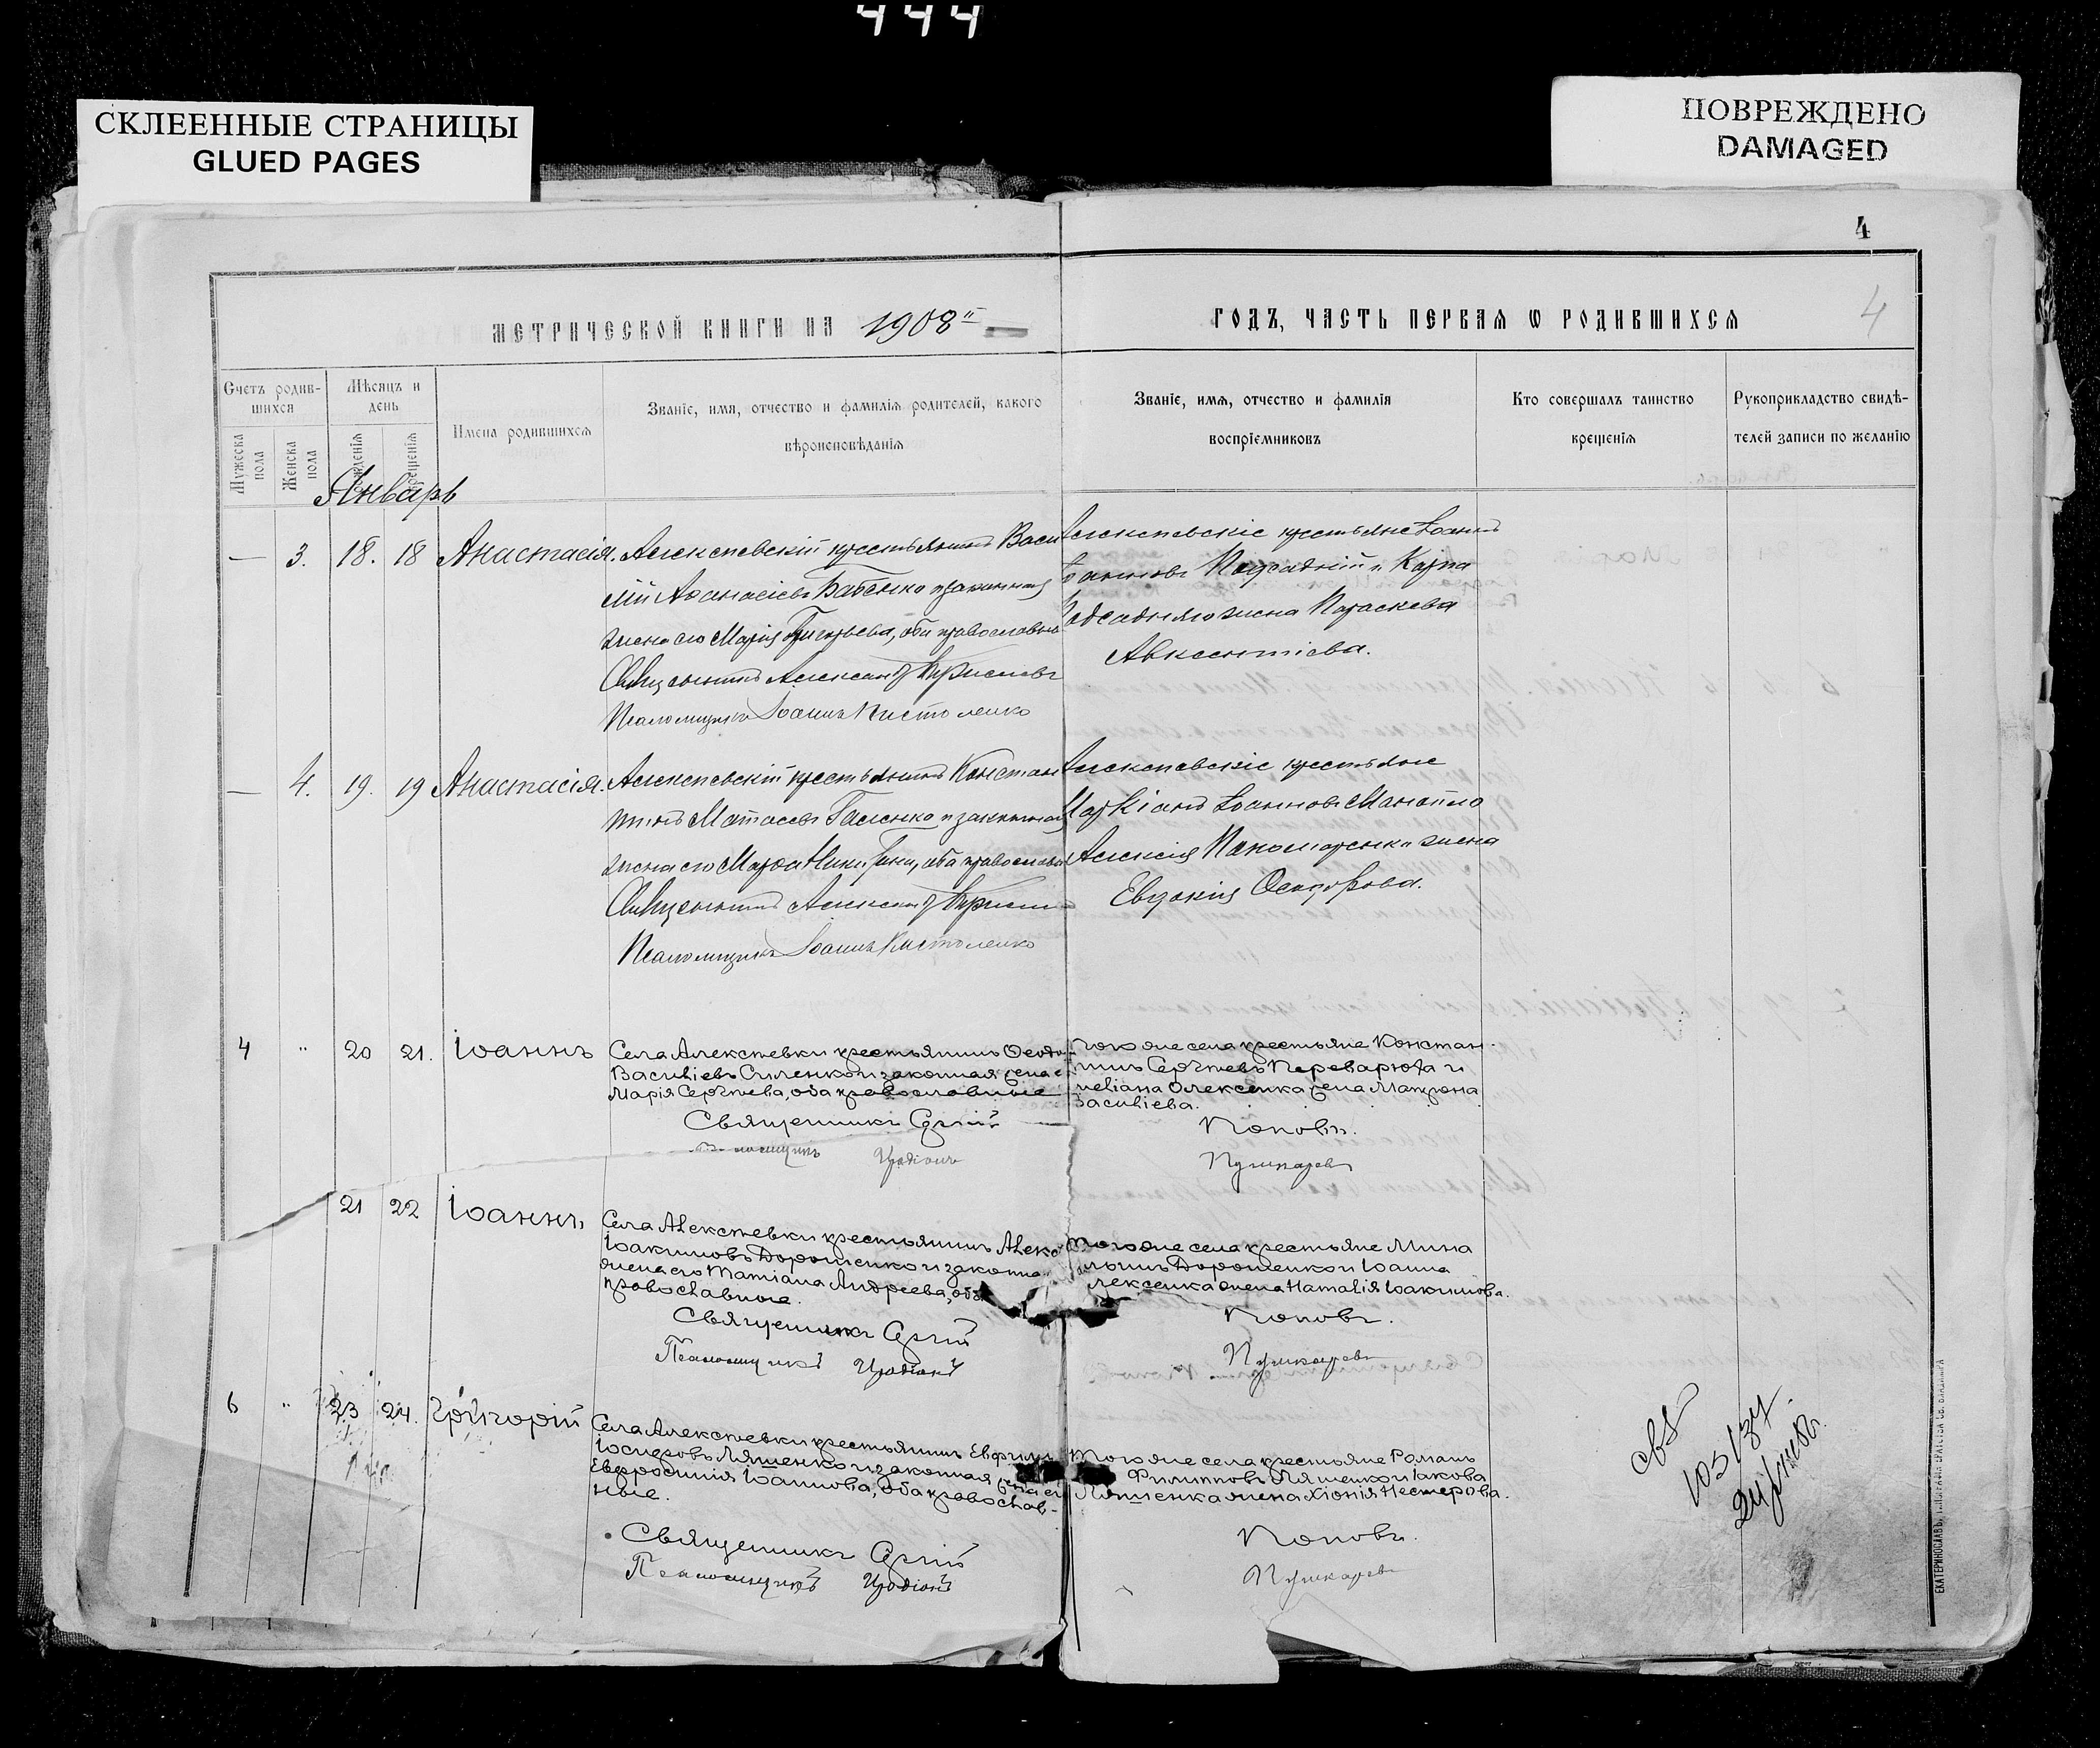 444
СКЛЕЕННЫЕ СТРАНИЦЫ
GLUED PAGES
ПОВРЕЖДЕНО
DAMAGED
4
4
МЕТРИЧЕСКОЙ КНИГИ НА 1908й ГОДЪ, ЧАСТЬ ПЕРВАЯ Ѡ РОДИВШИХСЯ
Счетъ родив-
шихся
Мужеска
пола
Женска
пола
Мѣсяцъ и
день
рожденія
крещенія
Имена родившихся
Званіе, имя, отчество и фамилія родителей, какого
вѣроисповѣданія
Званіе, имя, отчество и фамилія
воспріемниковъ
Кто совершалъ таинство
крещенія
Рукоприкладство свидѣ-
телей записи по желанію
Январь
— 3. 18. 18 Анастасія. Алексѣевскій крестьянинъ Васи
лій Аѳанасіевъ Бабенко и законная
жена его Марія Григорьева, оба православн
Священникъ Александръ
Псаломщикъ Іоаннъ
Алексѣевскіе крестьяне Іоаннъ
Іоанновъ Подсадній и Карпа
Подсадняго жена Параскева
Авксентіева.
— 4. 19. 19 Анастасія. Алексѣевскій крестьянинъ Констан
тинъ Галенко и законная
жена его оба православн
Священникъ Александръ
Псаломщикъ Іоаннъ
Алексѣевскіе крестьяне
Маркіанъ Іоанновъ Манойло
Алексія Пономаренка жена
Евдокія Ѳеодорова.
4 " 20 21. Іоаннъ Села Алексѣевки крестьянинъ Ѳеодо
Василіевъ Силенко и законная жена е
Марія Сергѣева, оба православные
Священникъ Сергій Поповъ.
Псаломщикъ Иродіонъ Пушкаревъ
того же села крестьяне Констан-
тинъ Сергѣевъ Переварюха и
Олексенка жена Матрона
Василіева.
21 22 Іоаннъ, Села Алексѣевки крестьянинъ Алекс
Іоакимовъ Дорошенко и законная
жена его Татіана Андреева, оба
православные.
Священникъ Сергій Поповъ.
Псаломщикъ Иродіонъ Пушкаревъ
того же села крестьяне Мина
Дорошенко и Іоанна
лексенка жена Наталія Іоакимова.
6 " 23 24. Григорій Села Алексѣевки крестьянинъ Евфимій
Іосифовъ Ляшенко и законная жена ег
Евфросинія Іоаннова, оба православ-
ные.
Священникъ Сергій Поповъ.
Псаломщикъ Иродіонъ Пушкаревъ
того же села крестьяне Романъ
Филипповъ Ляшенко и Іакова
Ляшенка жена Хіонія Нестерова.